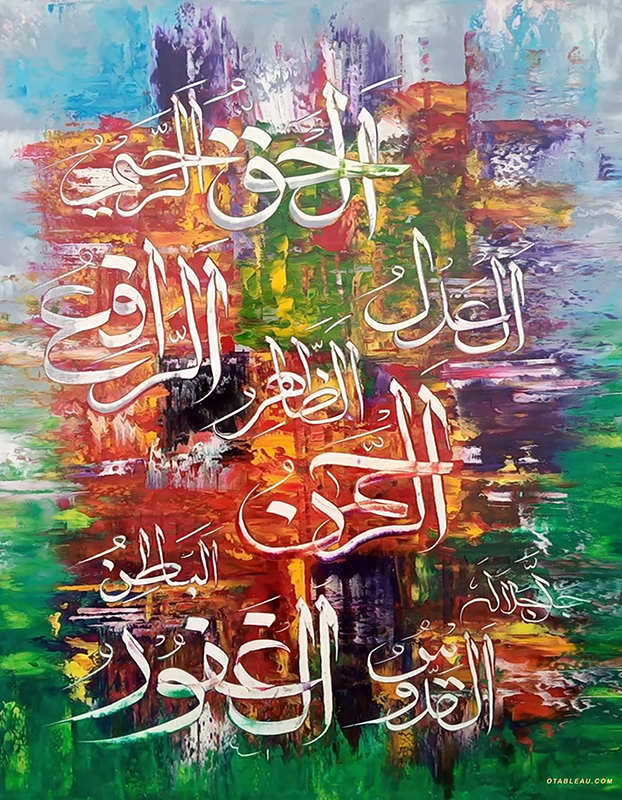 الحق الرحيم
العدل
الرافع
الظاهر
الرحمن
الباطن
جل جلاله
الغفور
القدوس
OTABLEAU.COM